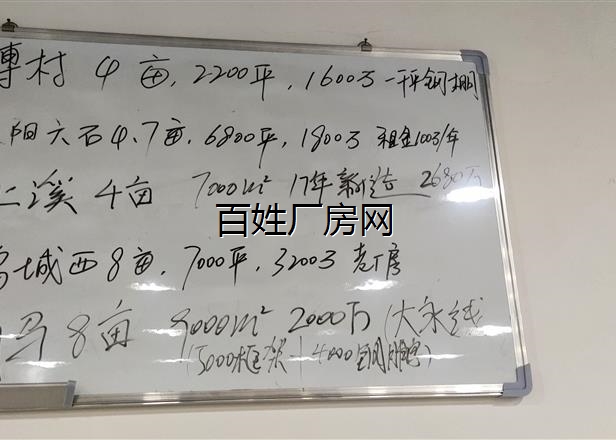 村 4亩,2200平,1600万 一平钢棚
阳六石4.7亩,6800平,1800万 租金100万/年
溪 4亩 7000m² 17年新造 2680万
百姓厂房网
城西8亩,7000平,3200万 老厂房
马 8亩 9000m² 2000万(大永线
(5000框架+4000钢棚)